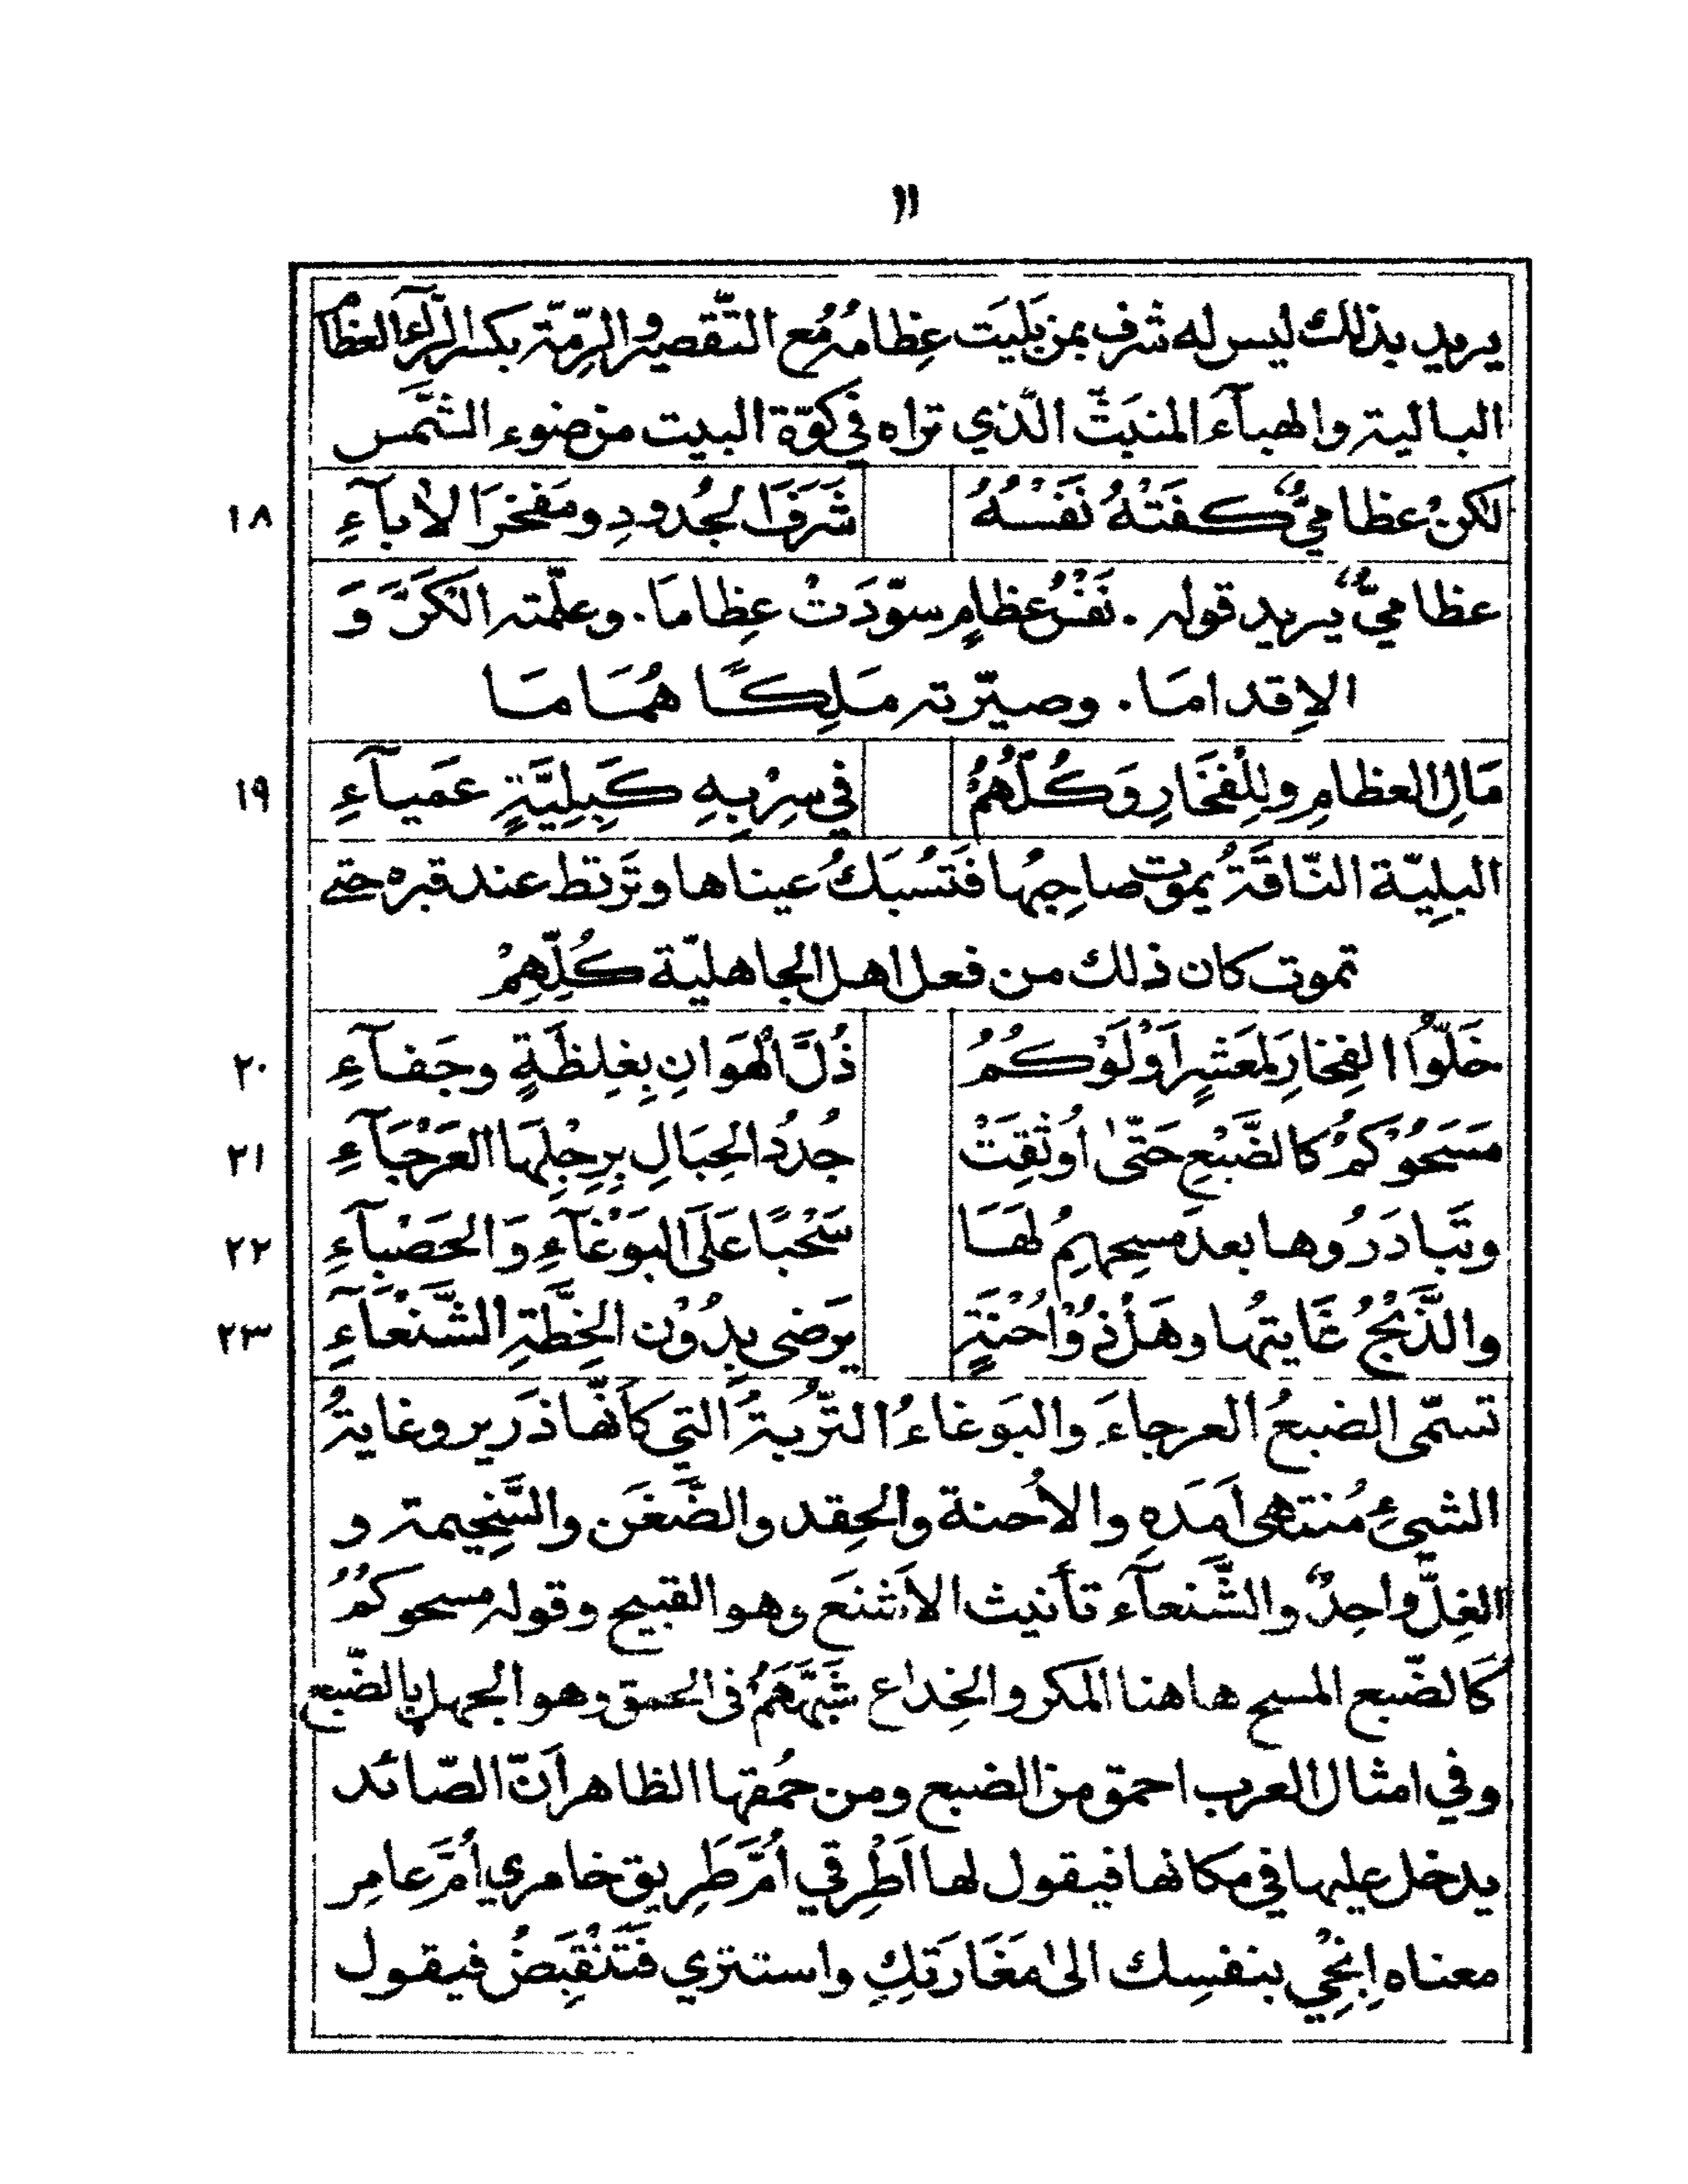 ١١
يريد بذلك ليس له شرف بمن بَلِيَت عِظامُه مُع التّقصير والرِّمّة بكسر الرّآءِ العظام
البالية والهبآءَ المنبَثّ الّذي تراه في كوّة البيت من ضوء الشّمس
لكنْ عظاميٌّ كَفَتْهُ نَفْسُهُ شَرَفَ الجُدودِ ومَفخَرَ الاٰبآءِ ١٨
عظاميٌّ يريد قوله . نَفْسُ عظامٍ سوّدَتْ عِظاما . وعلّمته الكَرَّ وَ
الاِقداما . وصيّرته مَلِكًا هُمَاما
مَالِ العظامِ ولِلْفَخَارِ وَكُلُّهُمْ في سِرْبِهِ كَبَلِيَّةٍ عَمياءِ ١٩
البلِيّة النّاقَةُ يموت صاحِبُها فَتُسْبَكُ عيناها وتَربَط عند قبره حتى
تموت كان ذلك من فعل اهل الجاهليّة كُلِّهِمْ
خَلّوُا الفِخارَ لِمَعشَرٍ اَوْلَوْكُمُ ذُلَّ الْهَوانِ بِغِلظَةٍ وجَفآءِ ٢٠
مَسَحُوْكُمُ كالضَّبْعِ حَتّىٰ اُوثِقِتْ جُدُدُ الحِبَالِ بِرِجْلِهَا العَرْجَآءِ ٢١
وتَبادَرُوها بعدَ مسحِهِمُ لَهَا سَحْبًا عَلَى البَوْغَآءِ وَالحَصْبآءِ ٢٢
والذَّبْحُ غَايتُها وهَلْ ذُوْ اُحْنَةٍ يَرضى بِدُوْن الخِطَّةِ الشَّنْعَآءِ ٢٣
تسمّى الضبعُ العرجاءَ والبَوغاءُ التُّربةُ التي كأنّها ذَرير وغايةُ
الشيءِ مُنتهى اَمَدِهِ والاُحنة والحِقد والضَّغَن والسَّخِيمة و
الغِلّ واحِدٌ والشَّنعآء تأنيث الاَشنَع وهو القبيح وقوله مسحوكُمُ
كَالضّبع المسح هاهنا المَكر والخِداع شَبَّهَهُمْ فى الحمق وهو الجهل بالضّبع
وفي امثال العرب احمق من الضبع ومن حُمقها الظاهر اَنّ الصّائد
يدخل عليها في مكانها فيقول لها اَطْرِقي اُمَّ طَرِيق خامري اُمَّ عامِر
معناه اِنْجِي بنفسِك الىٰ مَغَارَتِكِ واستتري فَتَنْقَبِضُ فيقول